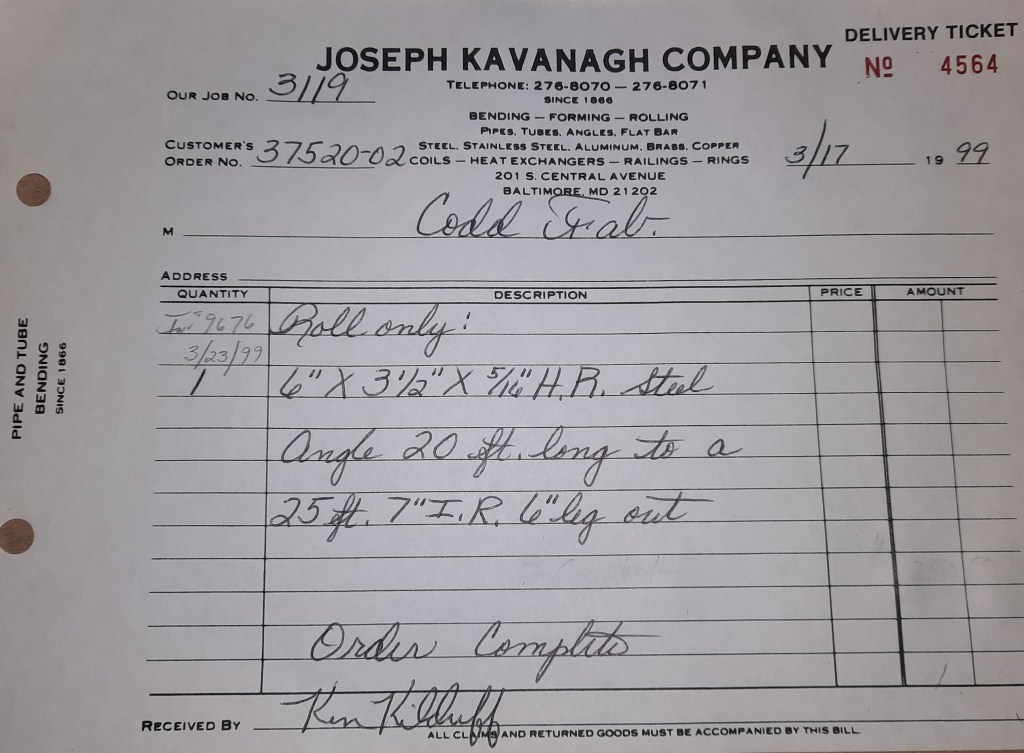 DELIVERY TICKET
JOSEPH KAVANAGH COMPANY
No 4564
TELEPHONE: 276-8070 — 276-8071
SINCE 1866
OUR JOB NO. 3119
BENDING — FORMING — ROLLING
PIPES, TUBES, ANGLES, FLAT BAR
STEEL, STAINLESS STEEL, ALUMINUM, BRASS, COPPER
CUSTOMER'S
ORDER NO. 37520-02
COILS — HEAT EXCHANGERS — RAILINGS — RINGS
3/17 1999
201 S. CENTRAL AVENUE
BALTIMORE, MD 21202
M Codd Fab.
ADDRESS
QUANTITY DESCRIPTION PRICE AMOUNT
Inv# 9676 Roll only:
3/23/99
1 6" X 3 1/2" X 5/16" H.R. Steel
Angle 20 ft. long to a
25 ft. 7" I.R. 6" leg out
Order Complete
RECEIVED BY Ken Kilduff
ALL CLAIMS AND RETURNED GOODS MUST BE ACCOMPANIED BY THIS BILL.
PIPE AND TUBE
BENDING
SINCE 1866